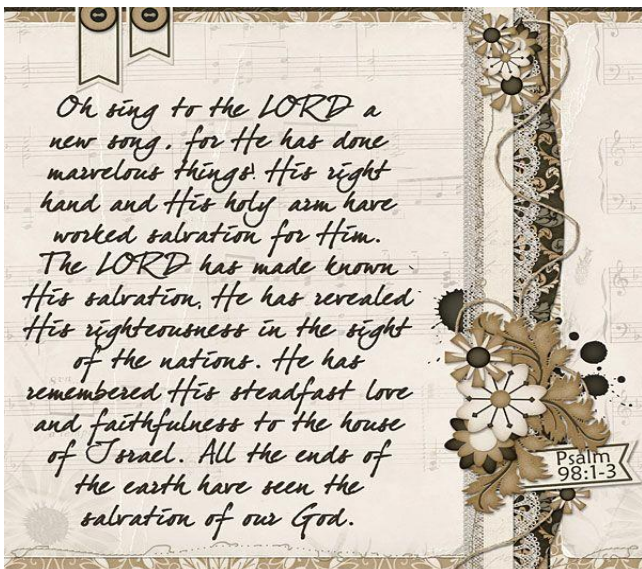 Oh sing to the LORD a
new song, for He has done
marvelous things! His right
hand and His holy arm have
worked salvation for Him.
The LORD has made known
His salvation, He has revealed
His righteousness in the sight
of the nations. He has
remembered His steadfast love
and faithfulness to the house
of Israel. All the ends of
the earth have seen the
salvation of our God.
Psalm
98:1-3